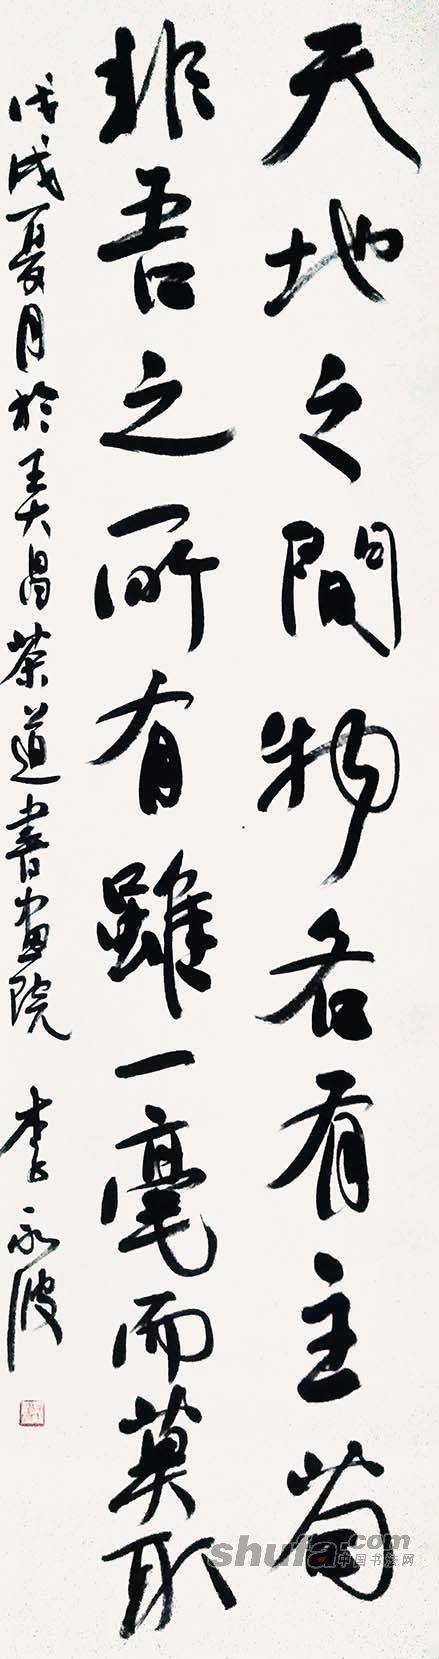 天地之間物各有主苟
非吾之所有雖一毫而莫取
戊戌夏月於吴大昌茶道書畫院 李永波
shufa.com
中国书法网